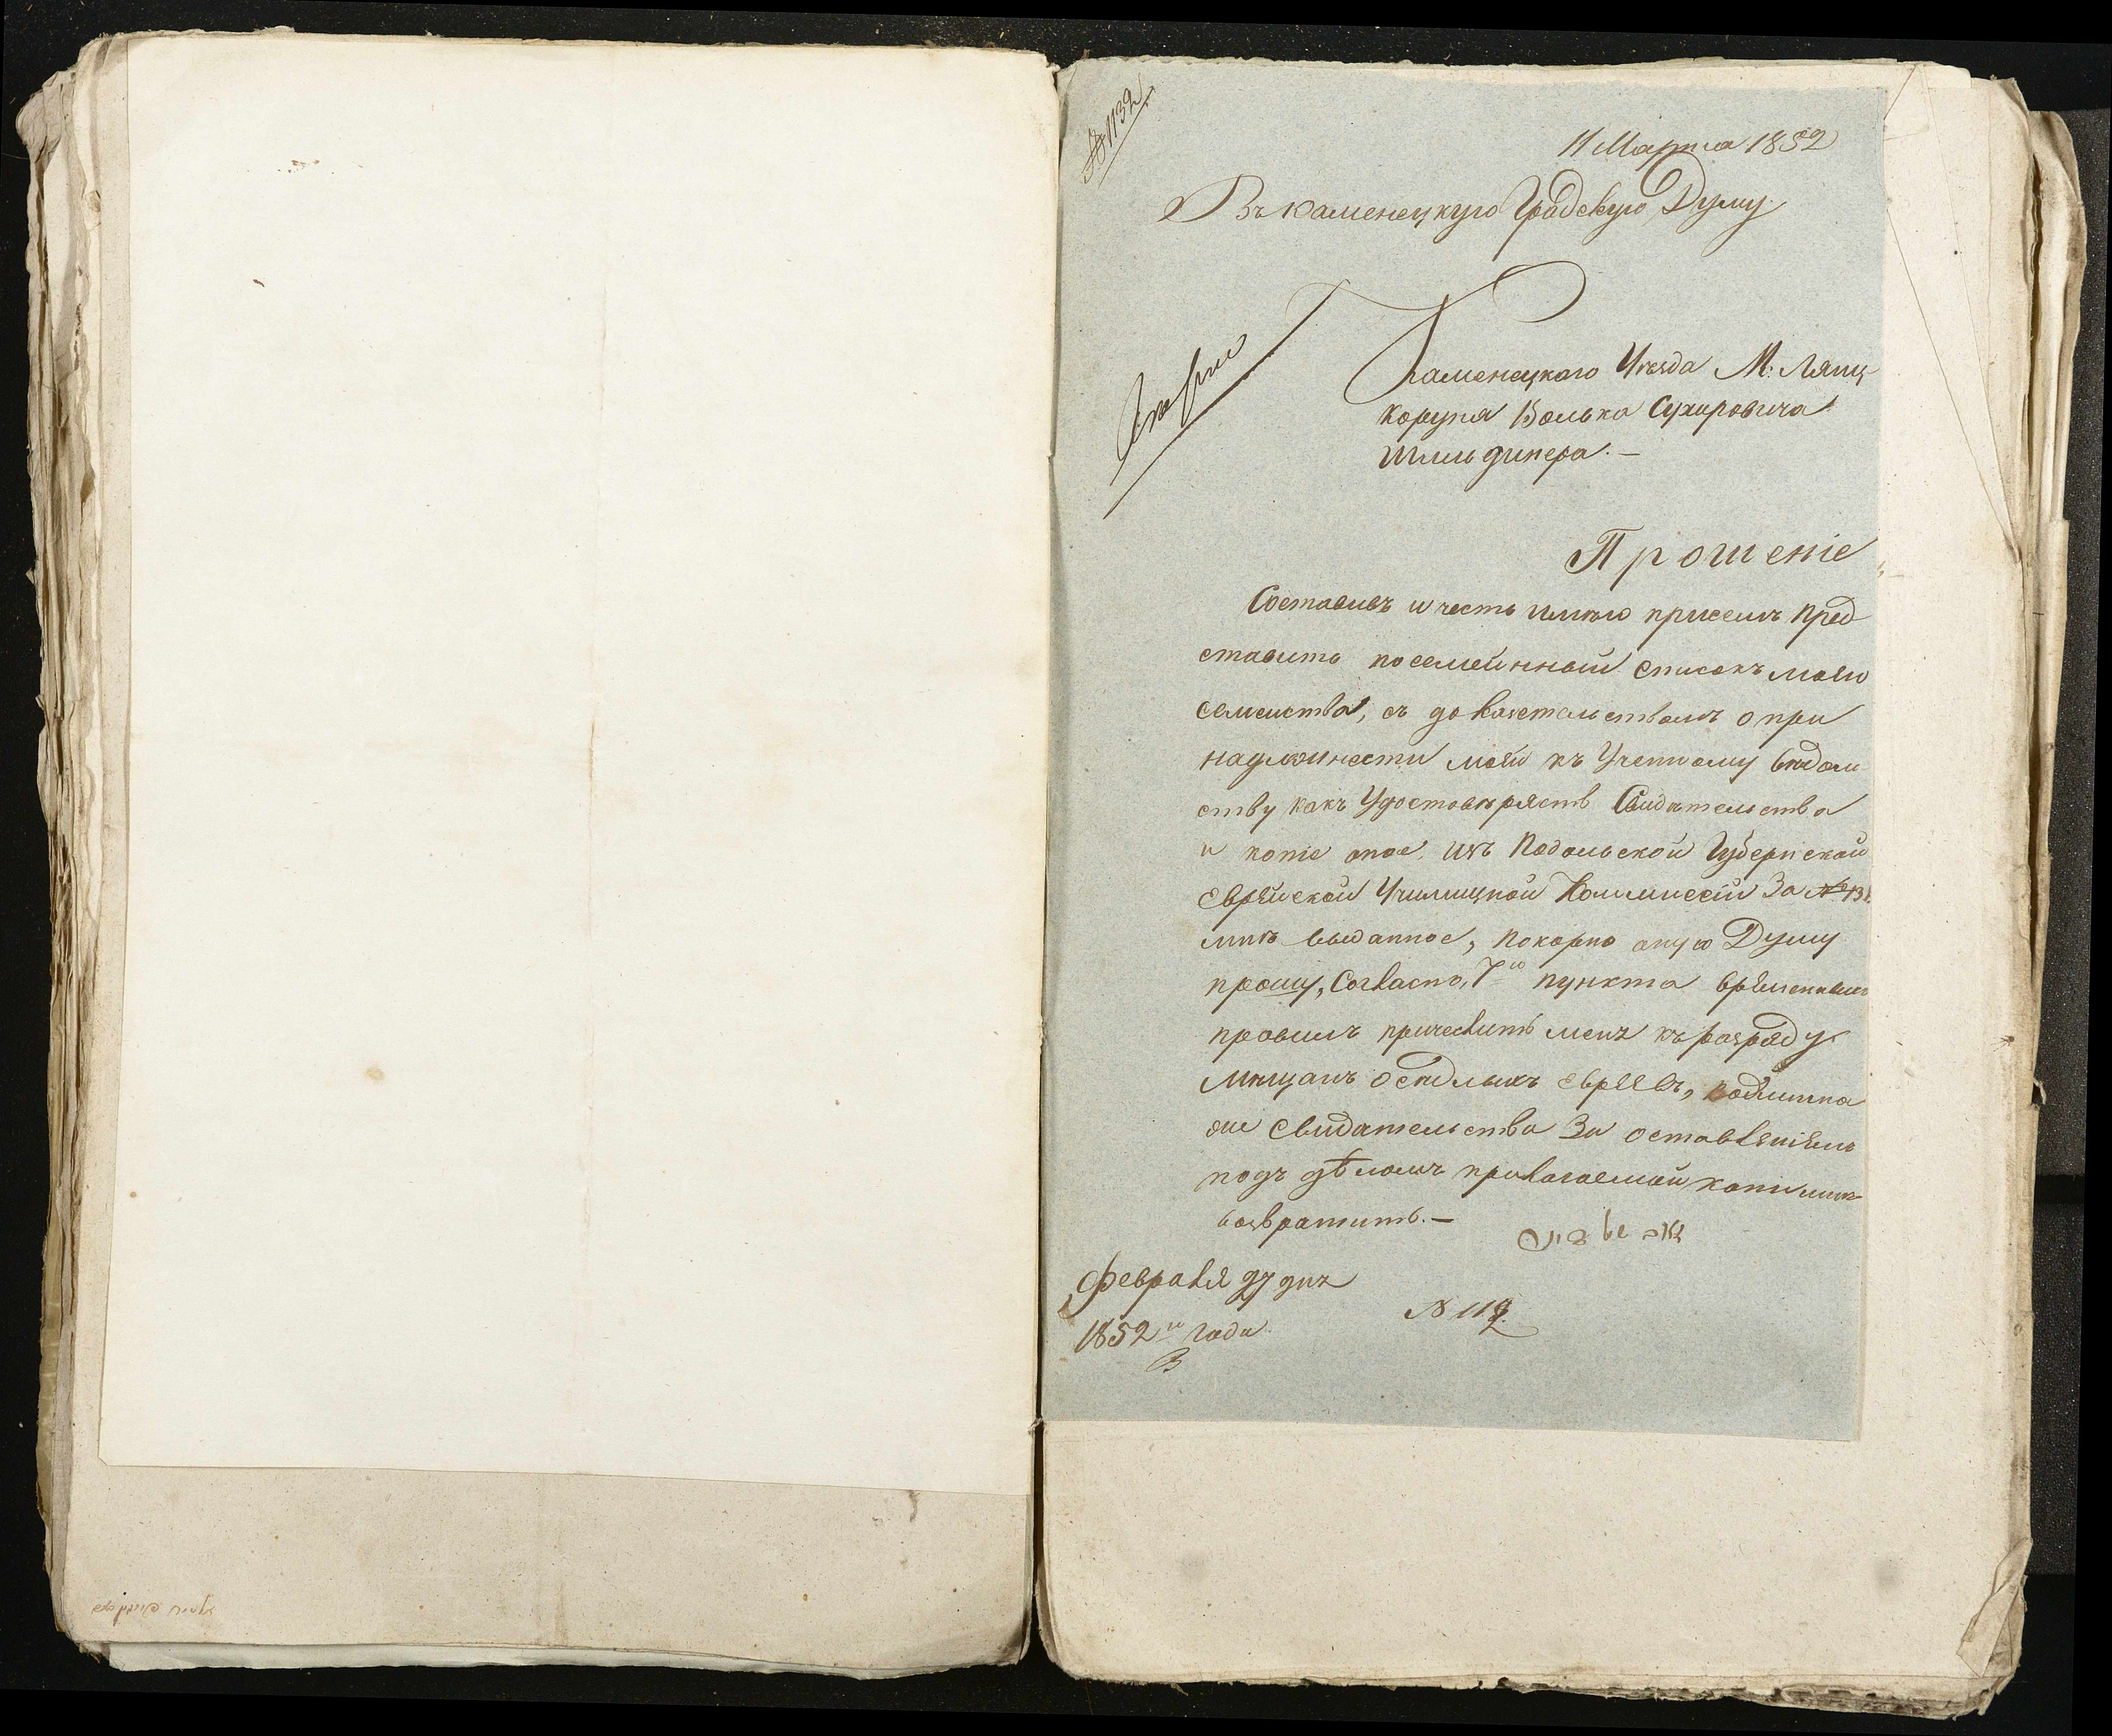 № 1132
11 Марта 1852
Въ Каменецкую Градскую Думу
Каменецкого Уезда М: Лянц
коруня Волька Сухировича
Шмидингера. —
Прошеніе
Составивъ и честь имѣю присемъ пред
ставить посемейнный списокъ моего
семейства, съ доказательствомъ о при
надлежности моей къ Учетному вѣдом
ству какъ Удостовѣряетъ Свидѣтельства
и копіе оное, изъ Подольской Губернской
Еврейской Училищной Коммиссіи За №
мнѣ выданное, покорно оную Думу
прошу, Согласно, 7го пункта временныхъ
правилъ причеслить меня къ разряду
мѣщанъ осѣдлыхъ евреевъ, подлинна
ое Свидѣтельства За оставленіемъ
подъ дѣломъ прилагаемой копіи мнѣ
возвратить. —
Февраля 27 дня
1852го года
№ 112